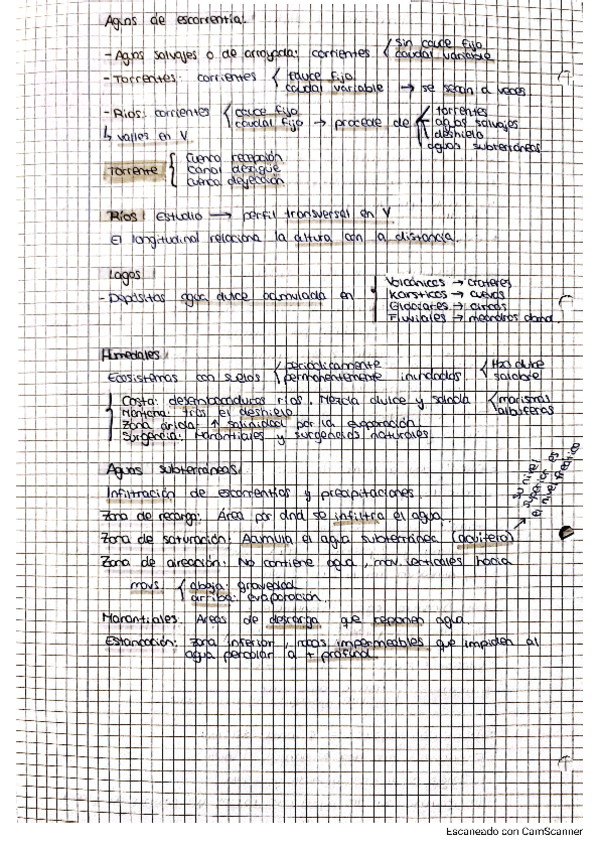 Aguas de escorrentía:
- Aguas salvajes o de arroyada: corrientes { sin cauce fijo
caudal variable
- Torrentes: corrientes { cauce fijo
caudal variable → se secan a veces
- Ríos: corrientes { cauce fijo
caudal fijo → procede de { torrentes
aguas salvajes
deshielo
aguas subterráneas
↳ valles en V
Torrente { Cuenca recepción
Canal desagüe
Cuenca deyección
Ríos: Estudio → perfil transversal en V
El longitudinal relaciona la altura con a distancia.
Lagos
- Depósitos agua dulce acumulada en { Volcánicos → cráteres
Kársticos → cuevas
Glaciares → circos
Fluviales → meandros
Humedales
Ecosistemas con suelos { periódicamente
permanentemente inundados { H2O dulce
salobre
Costa: desembocaduras ríos. Mezcla dulce y salada { marismas
albuferas
Montaña: tras el deshielo
Zona árida: ↑ salinidad por la evaporación
Surgencia: Manantiales y surgencias naturales
Aguas subterráneas
Infiltración de escorrentías y precipitaciones
Zona de recarga: Área por dnd se infiltra el agua.
Zona de saturación: Acumula el agua subterránea (acuífero)
→ su nivel
superior es
el nivel freático
Zona de aireación: No contiene agua, mov. verticales hacia
movs { abajo: gravedad
arriba: evaporación
Manantiales: Áreas de descarga que reponen agua
Estancación: Zona inferior, rocas impermeables que impiden al
agua percolar a + profund.
Escaneado con CamScanner